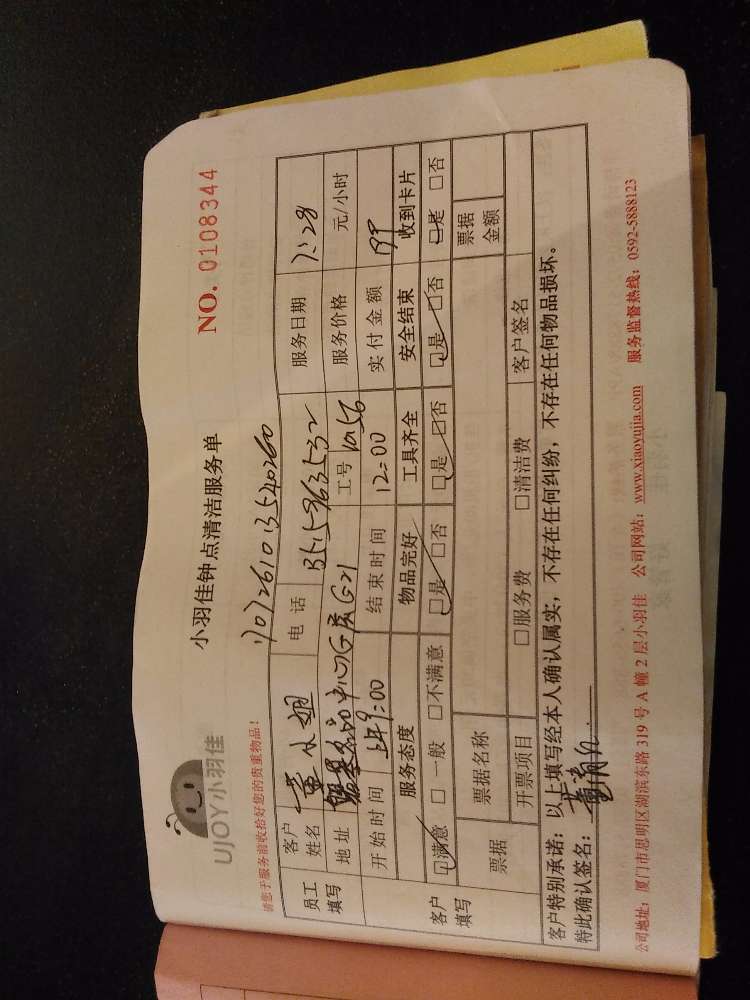 UJOY小羽佳
小羽佳钟点清洁服务单
NO. 0108344
请您于服务前收拾好您的贵重物品!
1707261013540260
员工填写 客户姓名 董小姐 电话 服务日期 7.28
地址 工号 服务价格 元/小时
开始时间 上午9:00 结束时间 12:00 实付金额
客户填写 服务态度 物品完好 工具齐全 安全结束 收到卡片
□满意 □一般 □不满意 □是 □否 □是 □否 □是 □否 □是 □否
票据 票据名称 票据金额
开票项目 □服务费 □清洁费 客户签名
客户特别承诺：以上填写经本人确认属实，不存在任何纠纷，不存在任何物品损坏。
特此确认签名：
公司地址：厦门市思明区湖滨东路319号A幢2层小羽佳 公司网站：www.xiaoyujia.com 服务监督热线：0592-5888123